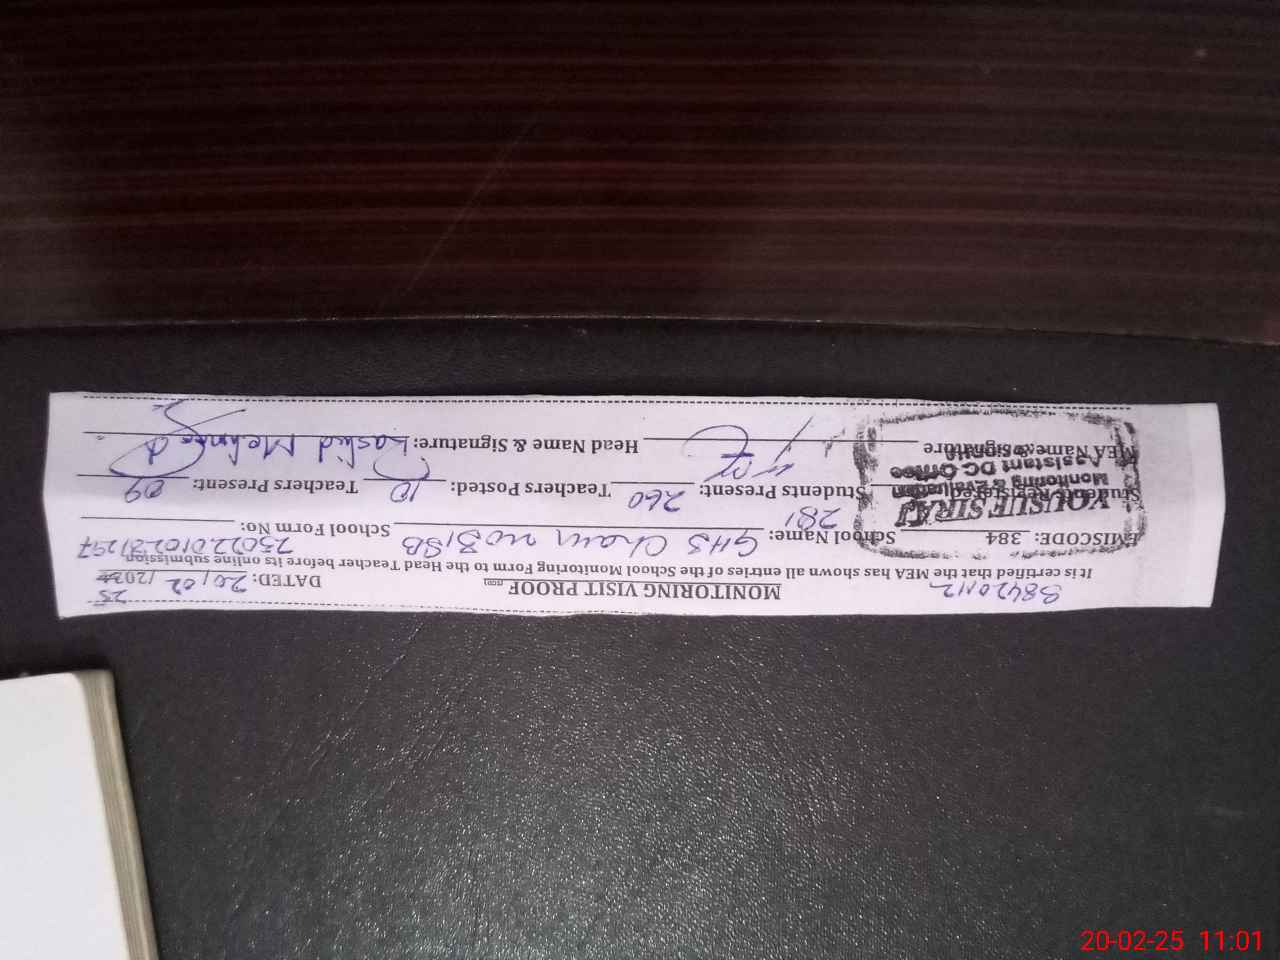 MONITORING VISIT PROOF DATED: 20/02/2025
It is certified that the MEA has shown all entries of the School Monitoring Form to the Head Teacher before its online submission
EMISCODE: 384 38420112 School Name: GHS Chak no 81SB School Form No: 
Students Registered: 281 Students Present: 260 Teachers Posted: 10 Teachers Present: 09
MEA Name & Signature Head Name & Signature: Rashid Mehmood
YOUSUF SIRAJ
Monitoring & Evaluation
Assistant DC Office
20-02-25 11:01